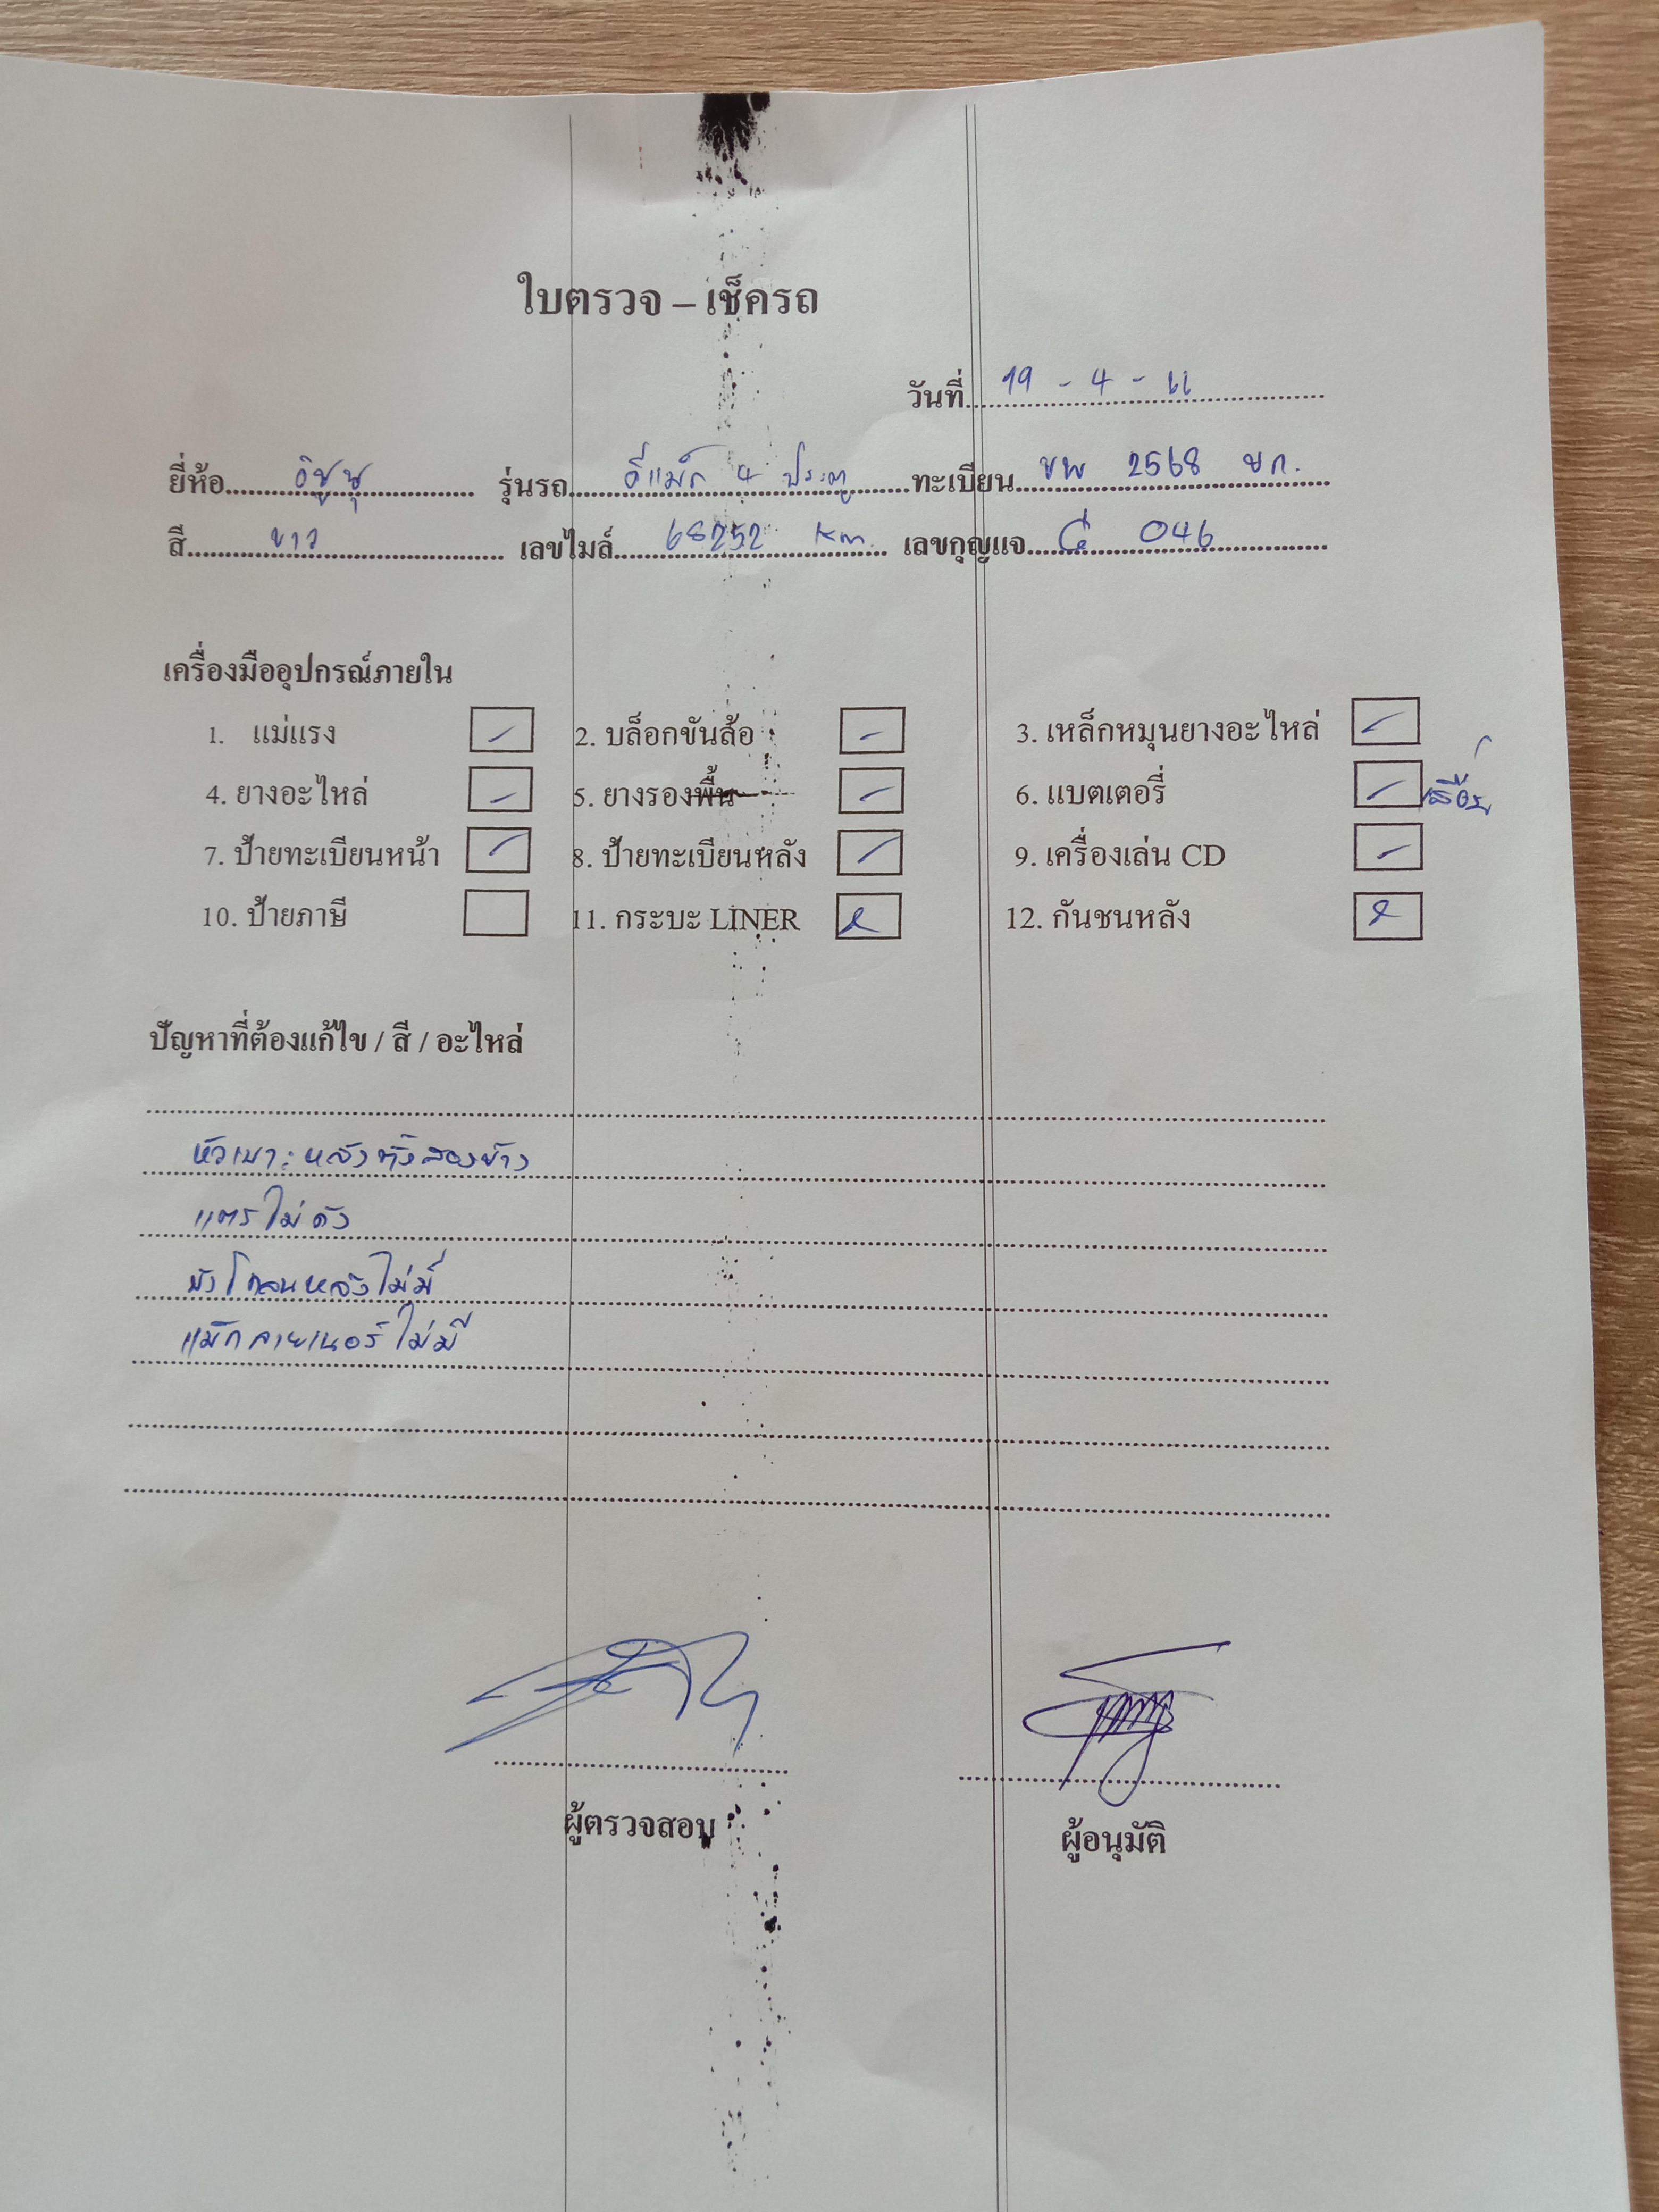 ใบตรวจ – เช็ครถ
วันที่ 19 - 4 - 66
ยี่ห้อ อีซูซุ รุ่นรถ ดีแม็ก 4 ประตู ทะเบียน ขพ 2568 ขก.
สี ขาว เลขไมล์ 68252 km. เลขกุญแจ 046
เครื่องมืออุปกรณ์ภายใน
1. แม่แรง 2. บล็อกขันล้อ 3. เหล็กหมุนยางอะไหล่
4. ยางอะไหล่ 5. ยางรองพื้น 6. แบตเตอรี่
7. ป้ายทะเบียนหน้า 8. ป้ายทะเบียนหลัง 9. เครื่องเล่น CD
10. ป้ายภาษี 11. กระบะ LINER 12. กันชนหลัง
ปัญหาที่ต้องแก้ไข / สี / อะไหล่
หัวเบาะหลังทั้งสองข้าง
แตรไม่ดัง
บังโคลนหลังไม่มี
แม็กลายเนอร์ไม่มี
ผู้ตรวจสอบ ผู้อนุมัติ